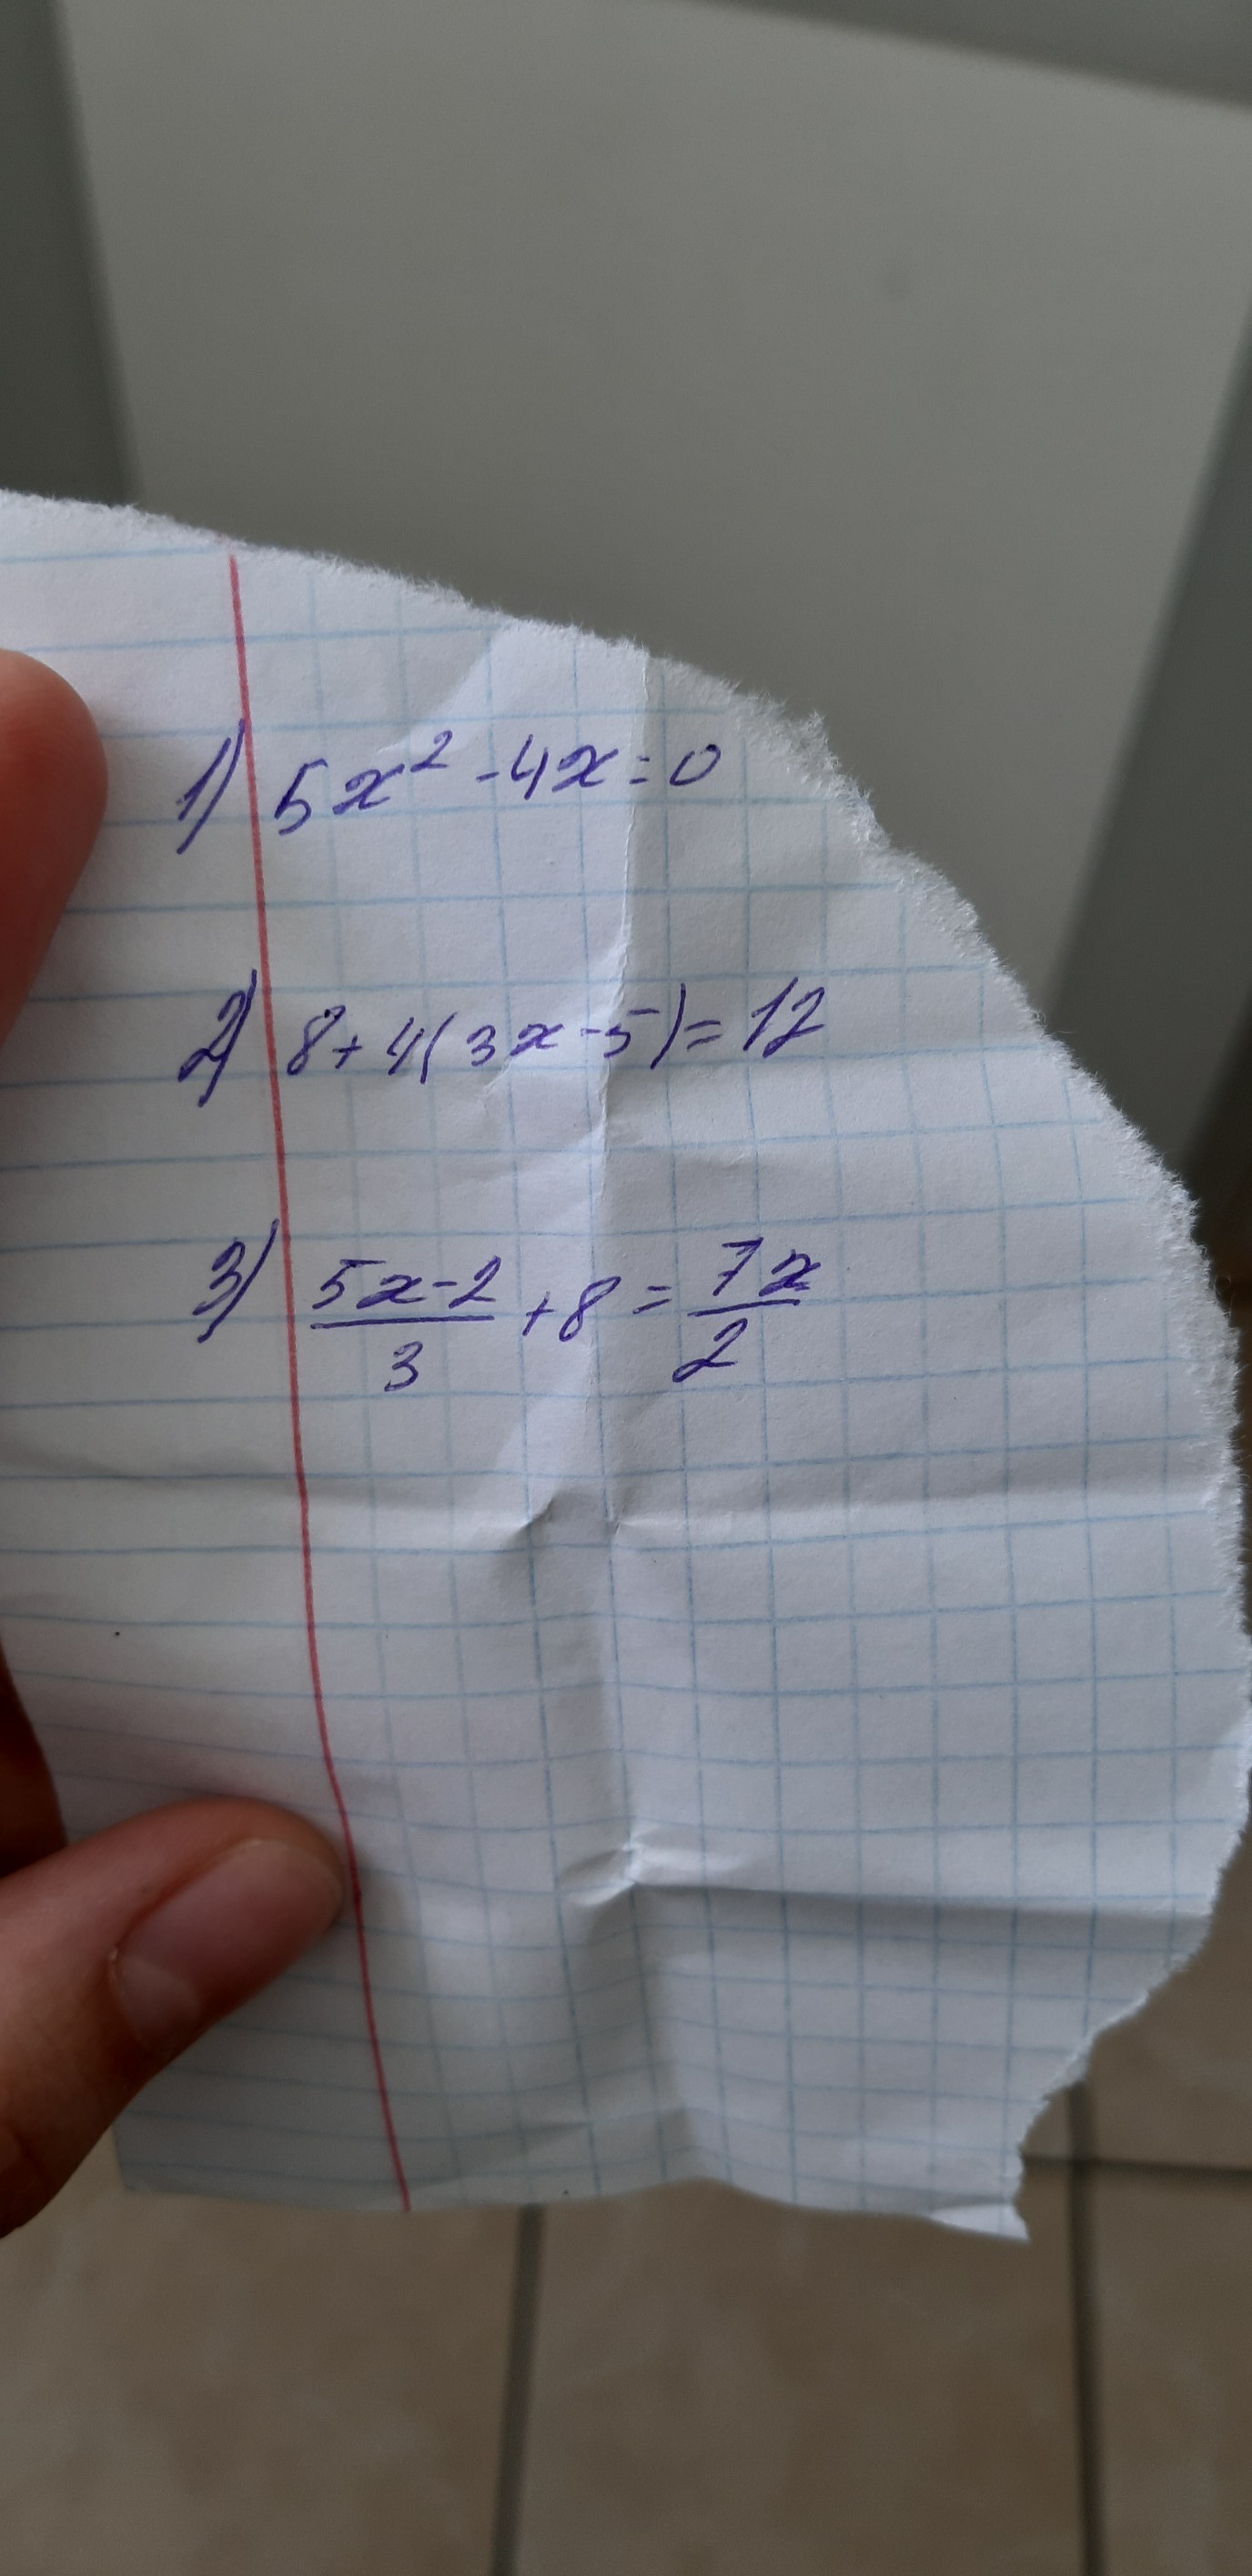 1) 5x² - 4x = 0
2) 8 + 4(3x - 5) = 12
3) (5x - 2)/3 + 8 = 7x/2